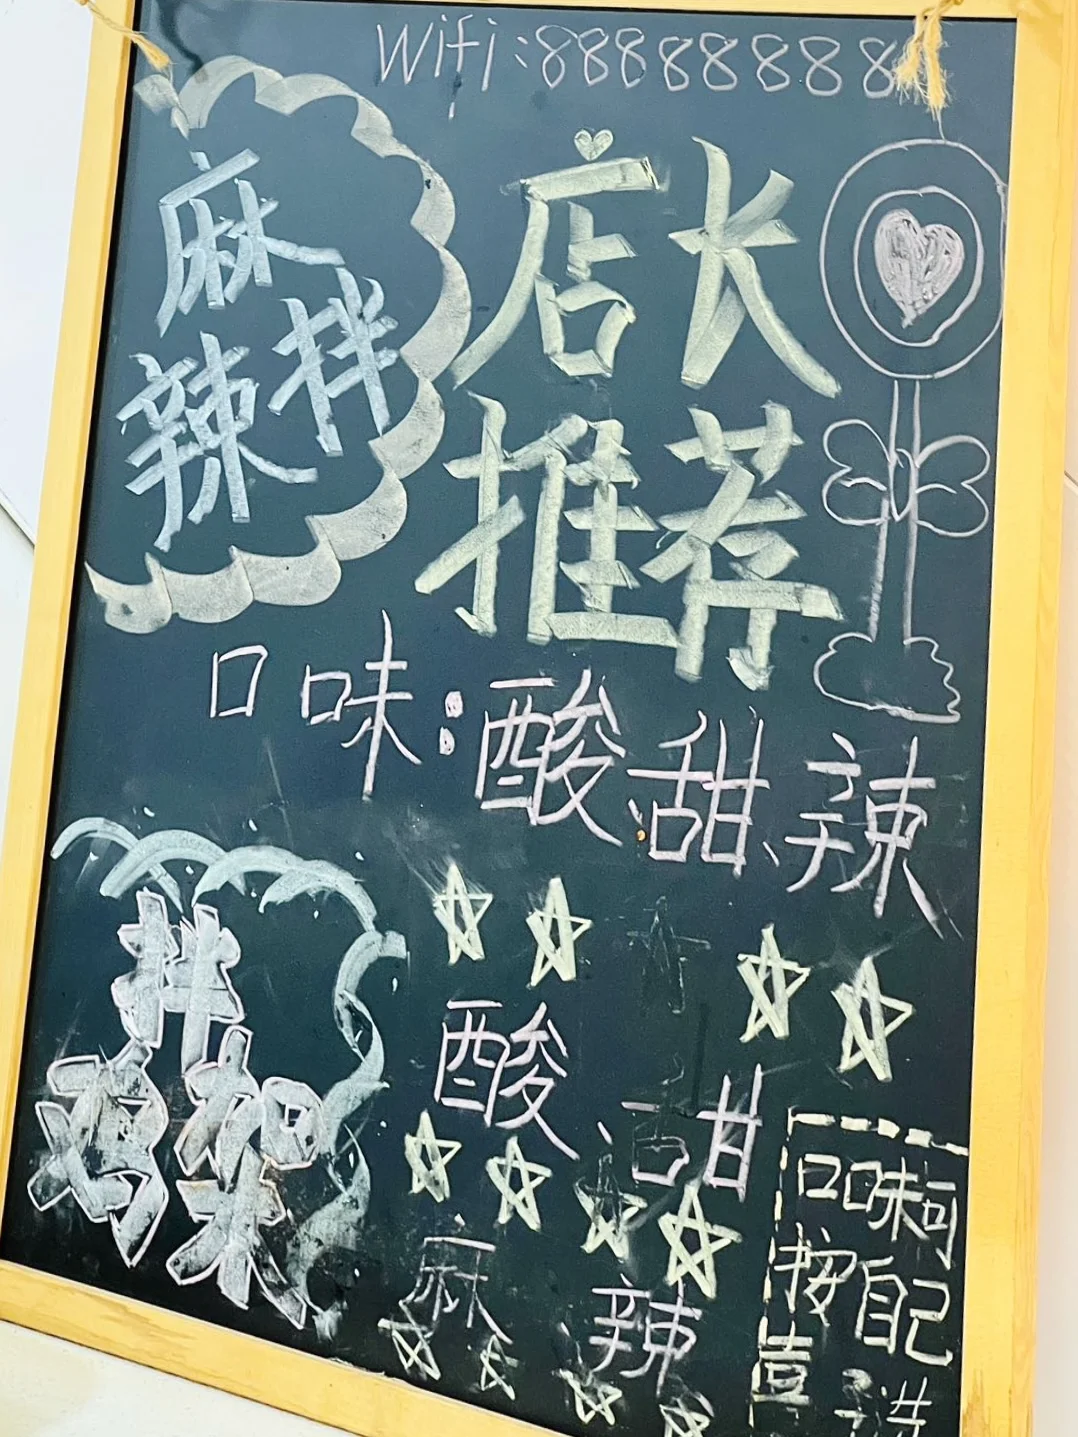 Wifi:88888888
麻辣拌
店长
推荐
口味:酸、甜、辣
拌鸡架
酸、甜
麻 辣
口味可
按自己
喜 选